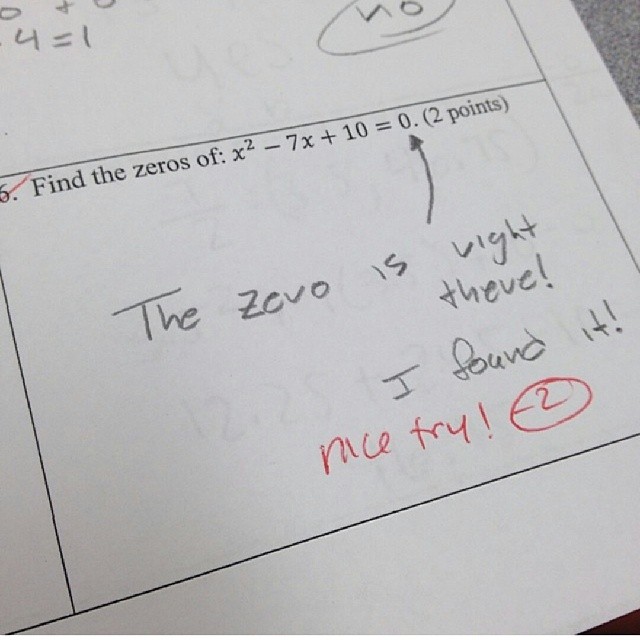 4 = 1
no
6. Find the zeros of: x² − 7x + 10 = 0. (2 points)
The zero is right
there!
I found it!
nice try! -2